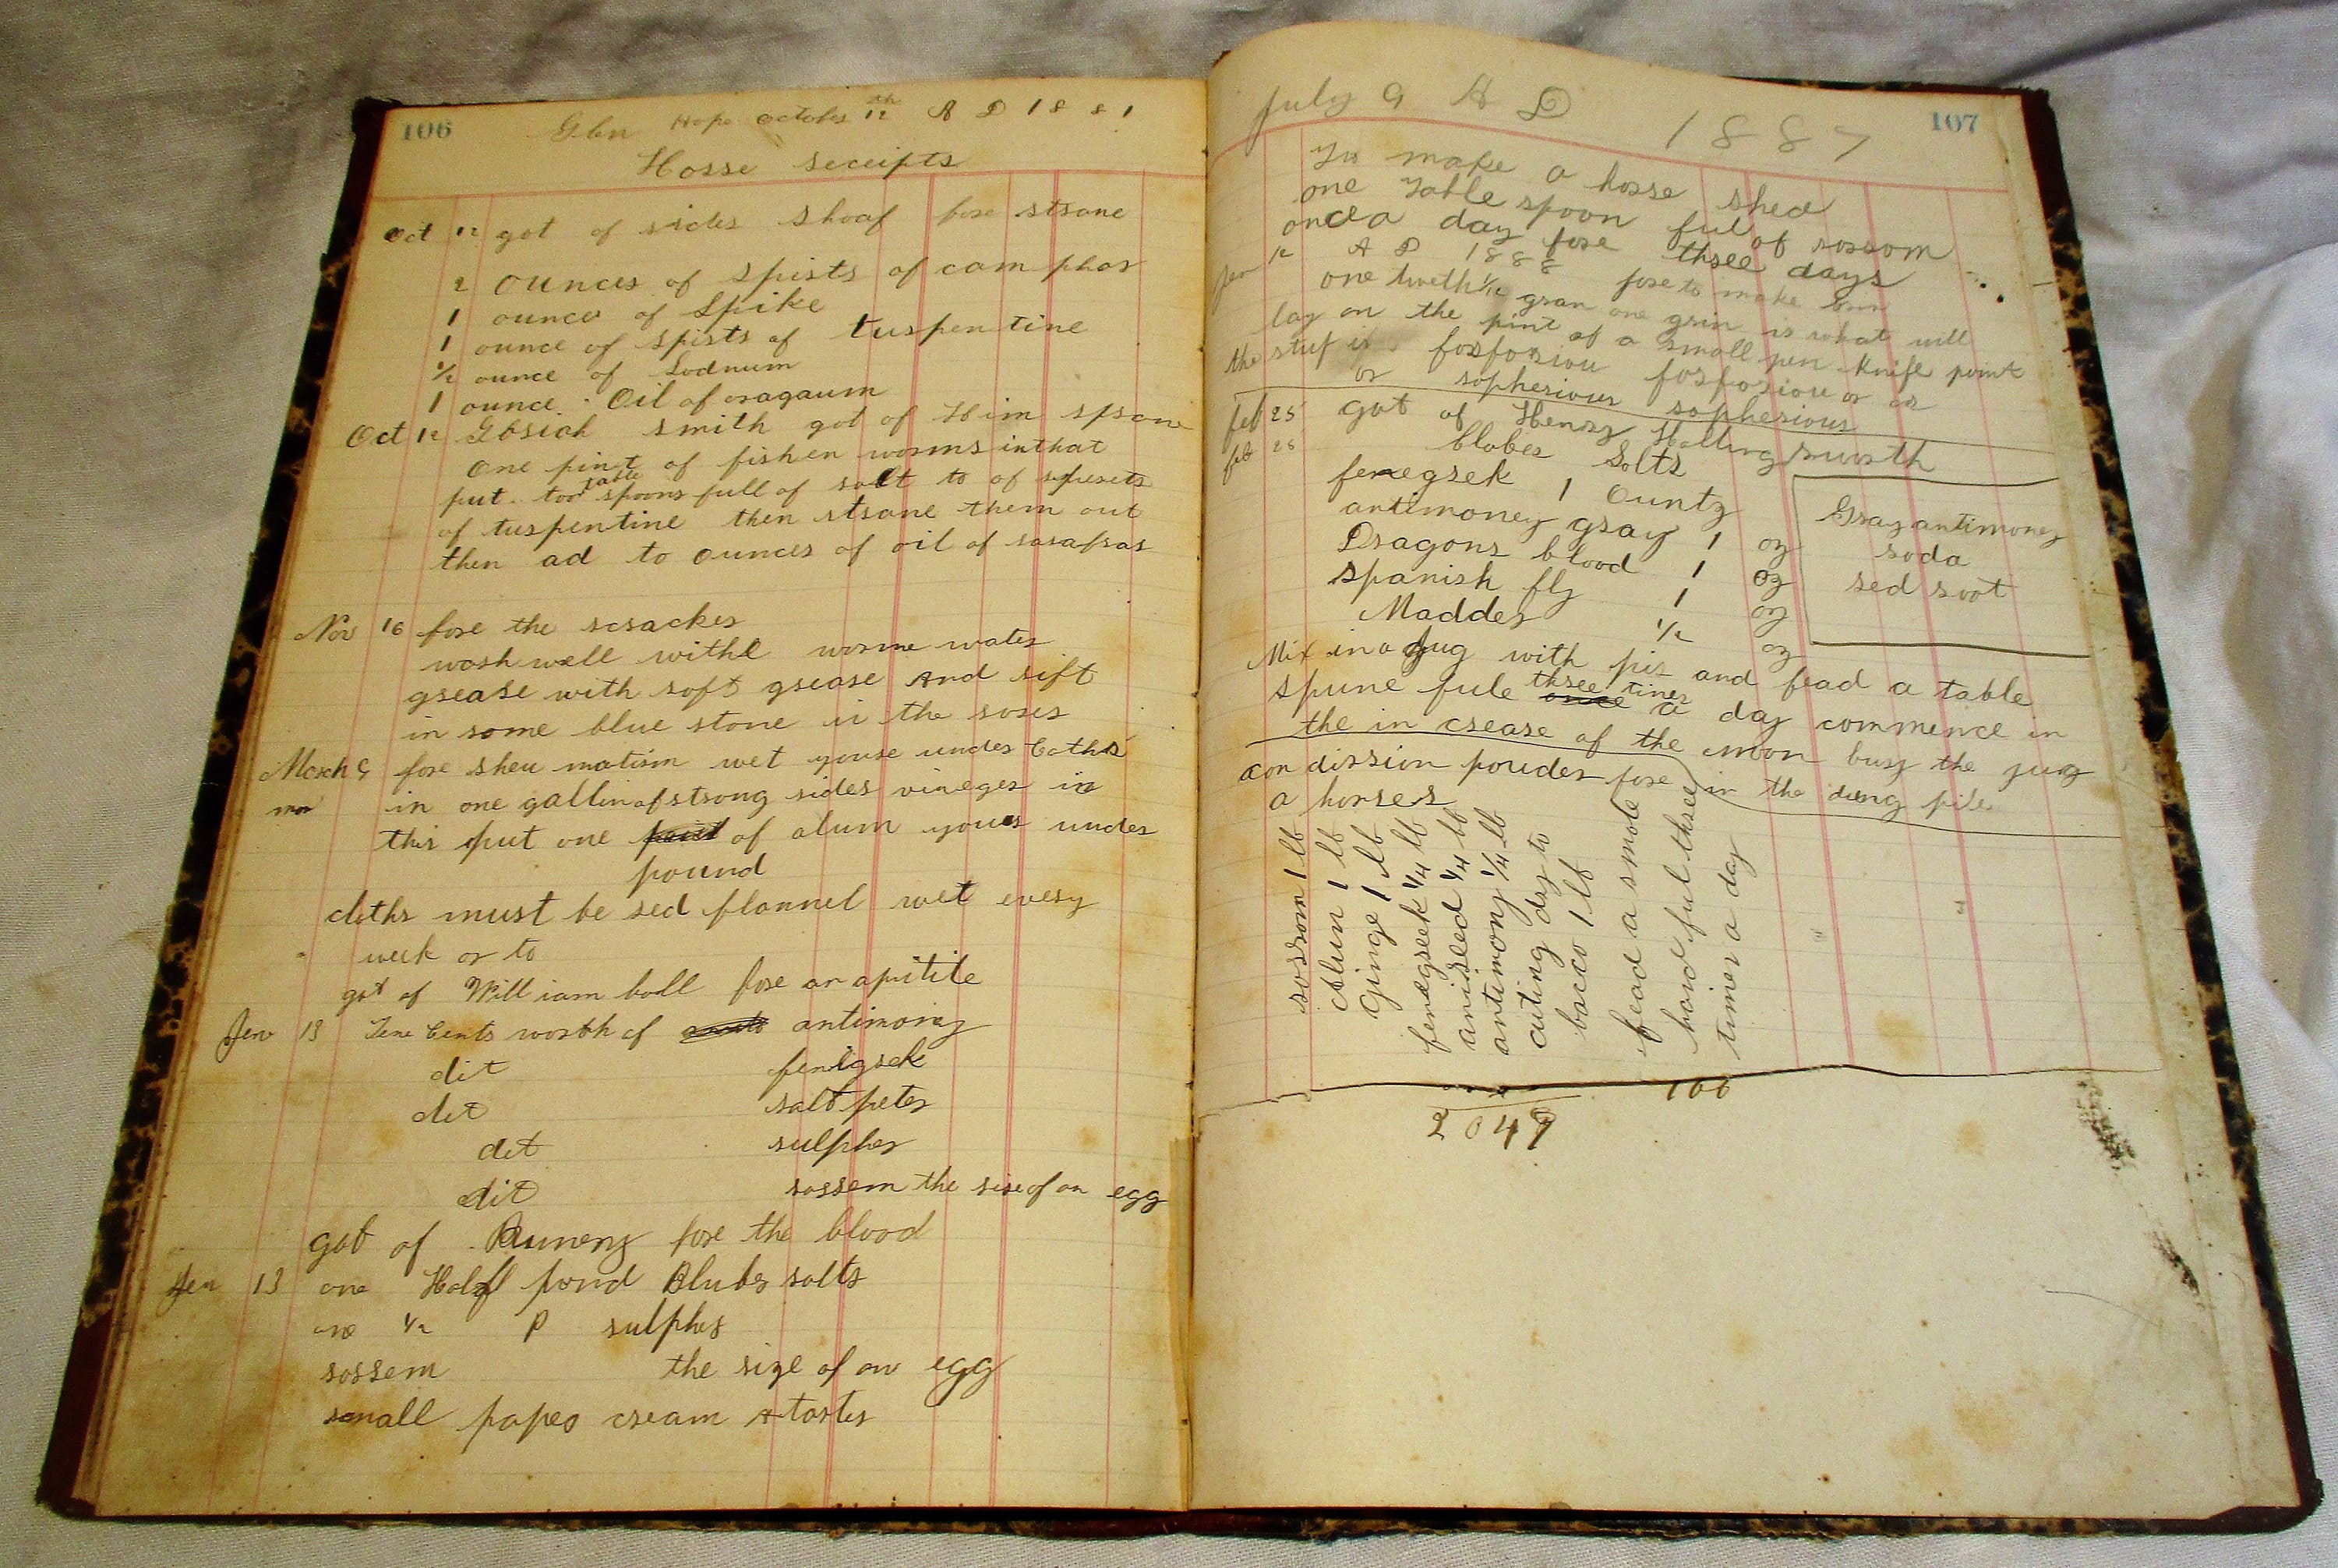 106
Glen Hope october 12th A D 1881
Horse receipts
Oct 12 got of rider Shoaf fore strane
2 ounces of spirts of cam phor
1 ounce of Spike
1 ounce of spirts of turpentine
1/2 ounce of Lodnum
1 ounce Oil of oragaum
Oct 12 smith got of Him sprane
one pint of fishen worms in that
put too table spoons full of salt to of spirets
of turpentine then strane them out
then ad to ounces of oil of sasafras
Nov 16 fore the scraches
wash well withe worme water
grease with soft grease and sift
in some blue stone in the sores
March 9 fore rheu matism wet youre under Coths
mar in one gallin of strong sider vineger in
this put one of alum your under
pound
cloths must be red flannel wet every
week or to
got of William ball fore an apitite
Jen 13 Tene Cents worth of antimony
dit fenigrek
dit salt peter
dit sulpher
dit rossem the sise of an egg
got of fore the blood
Jen 13 one Half pond Aluber salts
one 1/2 P sulpher
rossem the size of an egg
small paper cream of tarter
107
July 9 A D 1887
To make a horse shed
one Table spoon ful of rossom
once a day fore three days
Jen 12 A D 1888 fore to make
one twelth 1/12 gran one grin is what will
lay on the pint of a small pen knife point
the stuf is fosforiou fosforiou or
or sopherious sopherious
feb 25 got of Henry Hollingsworth
feb 25 Glober Salts
fenegreek 1 ountz
antimoney gray 1 oz
Dragons blood 1 oz
spanish fly 1 oz
Madder 1/2 oz
Gray antimoney
soda
red root
Mix in a Jug with pis and fead a table
spune fule three times a day commence in
the in crease of the moon bury the jug
in the dung pile
con dission pouder fore
a horses
rossom 1 lb
Alum 1 lb
Ginge 1 lb
fenegreek 1/4 lb
aniseed 1/4 lb
antimony 1/4 lb
cuting dry to
bacco 1 lb
fead a smole
hand ful three
times a day
2049